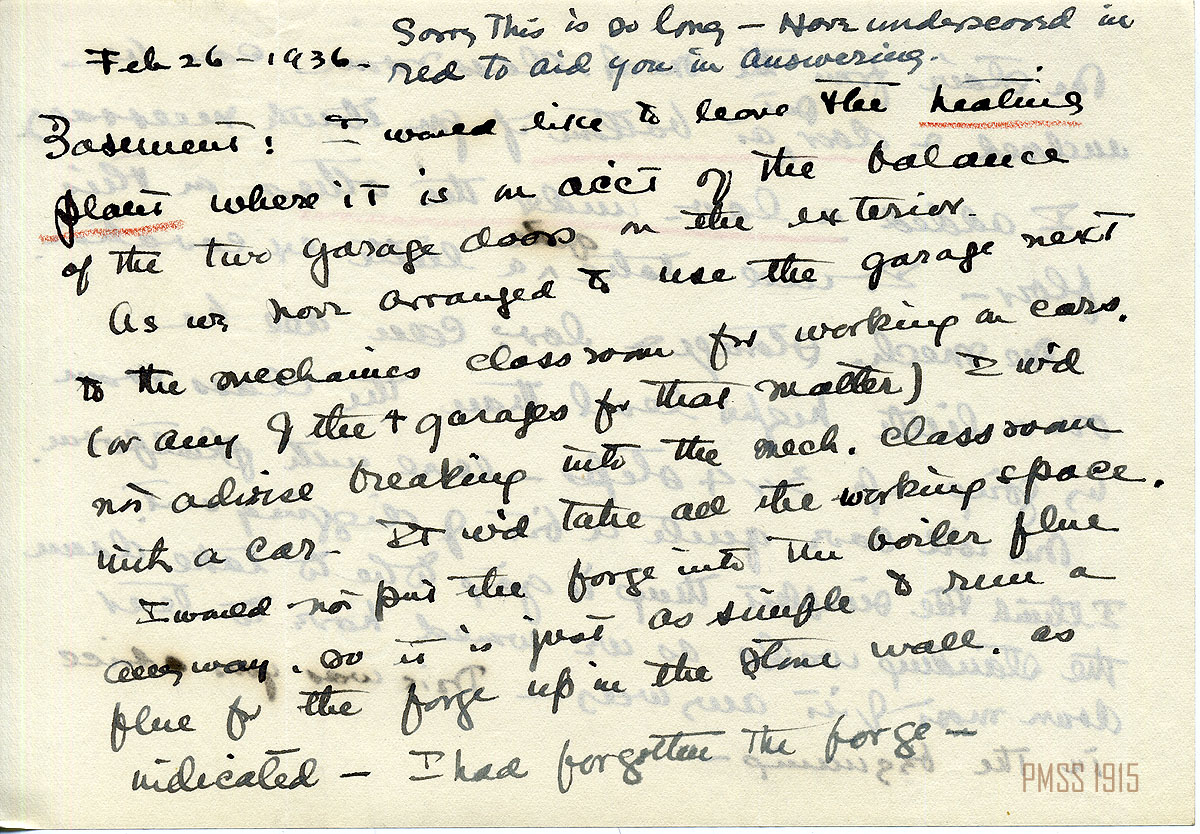 Sorry This is so long – Have underscored in
Feb 26 – 1936 – red to aid you in answering.
Basement: I would like to leave the heating
plant where it is on acct of the balance
of the two garage doors on the exterior.
As we have arranged to use the garage next
to the mechanics classroom for working on cars.
(or any of the 4 garages for that matter) I w'd
not advise breaking into the mech. classroom
with a car – It w'd take all the working space.
I would not put the forge into the boiler flue
any way. so it is just as simple to run a
flue for the forge up in the stone wall. as
indicated – I had forgotten the forge –
PMSS 1915